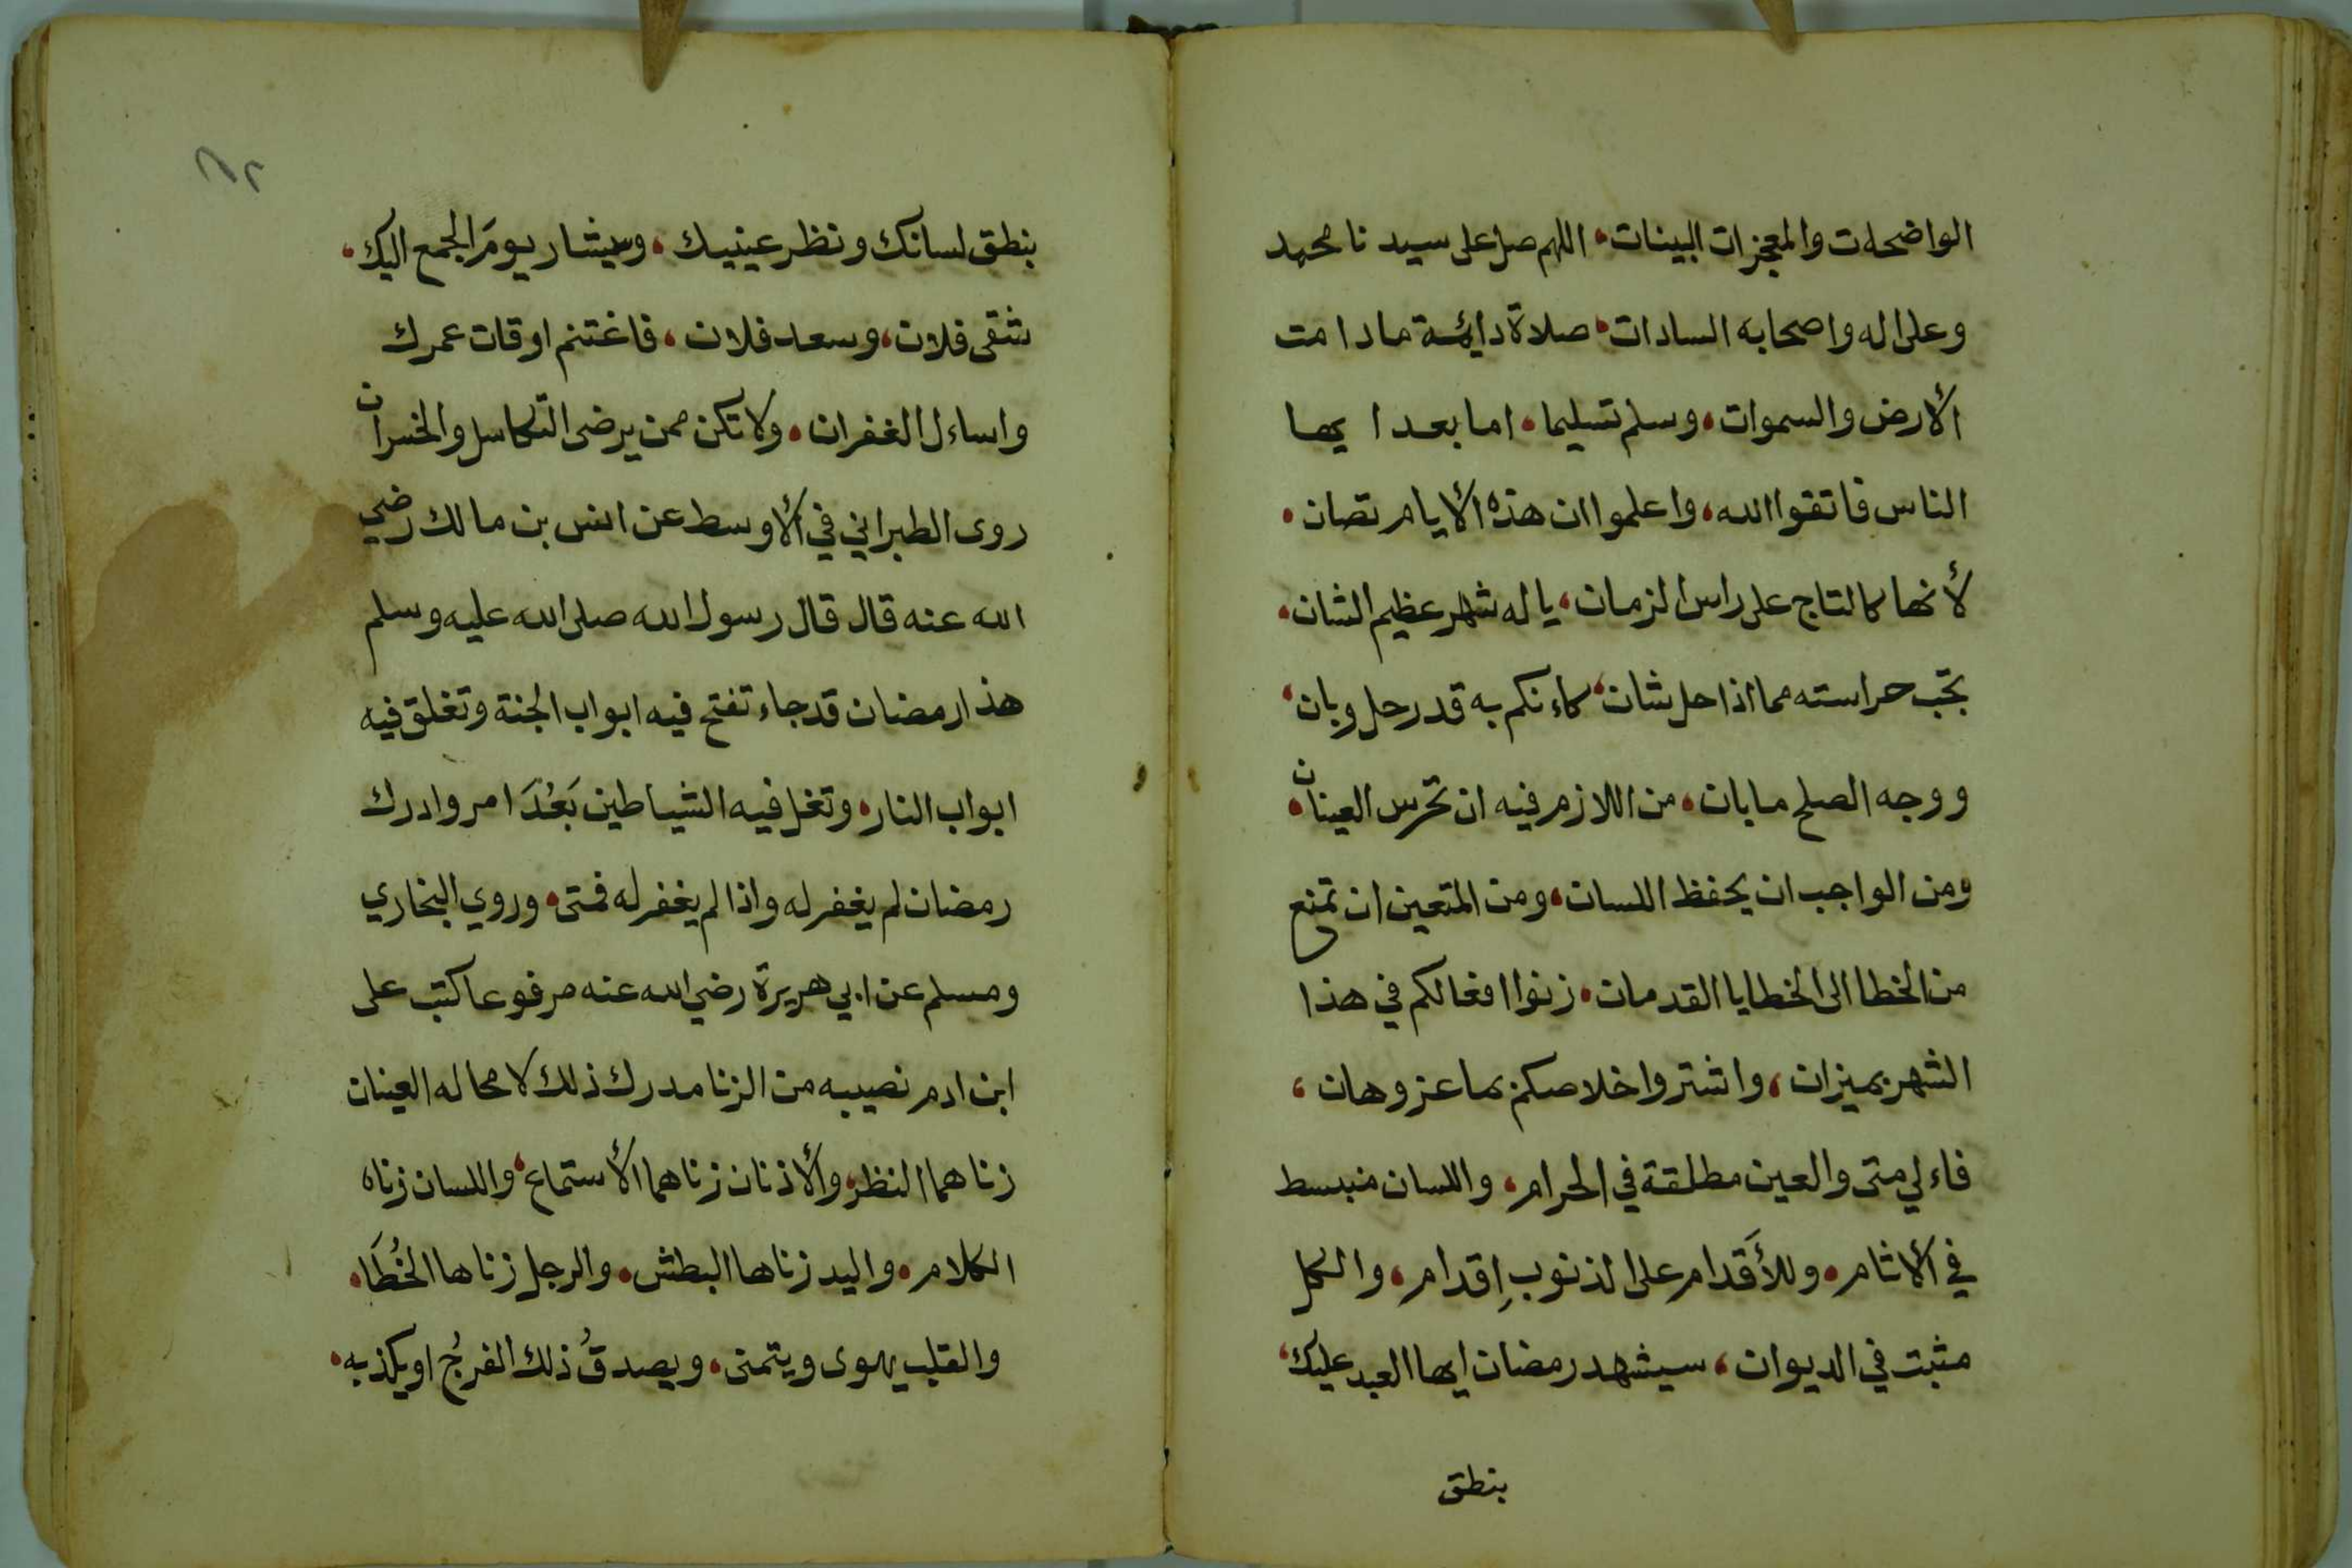 الواضحات والمعجزات البينات، اللهم صل على سيدنا محمد
وعلى اله واصحابه السادات، صلاة دائمة مادامت
الأرض والسموات، وسلم تسليما، اما بعد ايها
الناس فاتقوا الله، واعلموا ان هذه الأيام تصان،
لأنها كالتاج على راس الزمان، ياله شهر عظيم الشان،
تجب حراسته مما اذا حل شان، كاءنكم به قد رحل وبان،
ووجه الصلح مابان، من اللازم فيه ان تحرس العينان،
ومن الواجب ان يحفظ اللسان، ومن المتعين ان تمنع
من الخطا الى الخطايا القدمان، زنوا افعالكم في هذا
الشهر بميزان، واشتروا خلاصكم بما عز وهان،
فاءلي متى والعين مطلقة في الحرام، واللسان منبسط
في الأثام، وللأَقدام على الذنوبِ اِقدام، والكل
مثبت في الديوان، سيشهد رمضان ايها العبد عليك،
بنطق
٨٢
بنطق لسانك ونظر عينيك، وسيشار يومَ الجمع اليك،
شقى فلان، وسعد فلان، فاغتنم اوقات عمرك
واساءل الغفران، ولا تكن ممن يرضى التكاسل والخسران
روى الطبراني في الأوسط عن انس بن مالك رضي
الله عنه قال قال رسول الله صلى الله عليه وسلم
هذا رمضان قد جاء تفتح فيه ابواب الجنة وتغلق فيه
ابواب النار، وتغل فيه الشياطين بَعُدَ امرو ادرك
رمضان لم يغفر له واذا لم يغفر له فمتى، وروي البخاري
ومسلم عن ابي هريرة رضي الله عنه مرفوعا كتب على
ابن ادم نصيبه من الزنا مدرك ذلك لا محاله العينان
زناهما النظر، والأذنان زناهما الأستماع، واللسان زناه
الكلام، واليد زناها البطش، والرجل زناها الخُطَا،
والقلب يهوى ويتمنى، ويصدقُ ذلك الفرجُ او يكذبه،